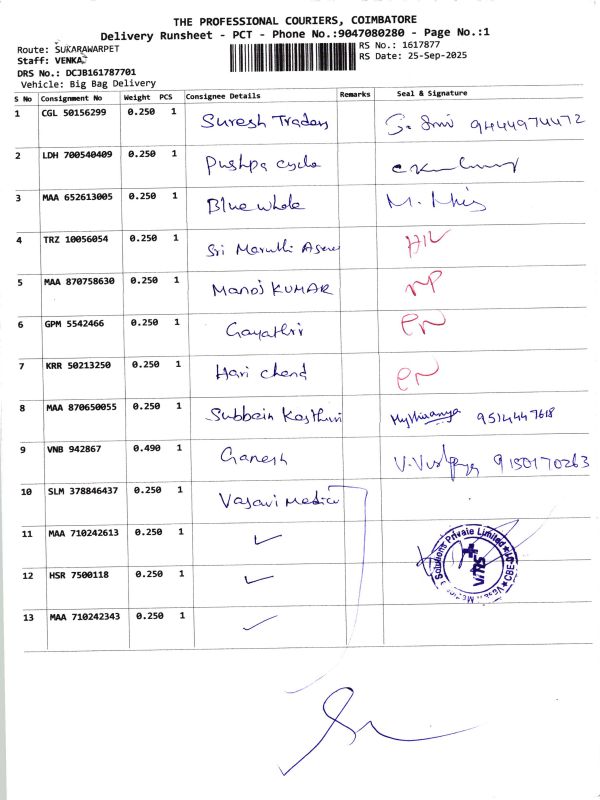 THE PROFESSIONAL COURIERS, COIMBATORE
Delivery Runsheet - PCT - Phone No.:9047080280 - Page No.:1
Route: SUKARAWARPET
RS No.: 1617877
Staff: VENKA
RS Date: 25-Sep-2025
DRS No.: DCJB161787701
Vehicle: Big Bag Delivery
S No Consignment No Weight PCS Consignee Details Remarks Seal & Signature
1 CGL 50156299 0.250 1 Suresh Traders 9444974472
2 LDH 700540409 0.250 1 Pushpa cycle
3 MAA 652613005 0.250 1 Blue whale
4 TRZ 10056054 0.250 1 Sri Maruthi
5 MAA 870758630 0.250 1 Manoj KUMAR
6 GPM 5542466 0.250 1 Gayathri
7 KRR 50213250 0.250 1 Hari chand
8 MAA 870650055 0.250 1 Subbain Kasthuri 9514447618
9 VNB 942867 0.490 1 Ganesh 9150170263
10 SLM 378846437 0.250 1 Vasavi Medica
11 MAA 710242613 0.250 1 ✓
12 HSR 7500118 0.250 1 ✓
13 MAA 710242343 0.250 1 ✓
Solutions Private Limited
VMS
CBE